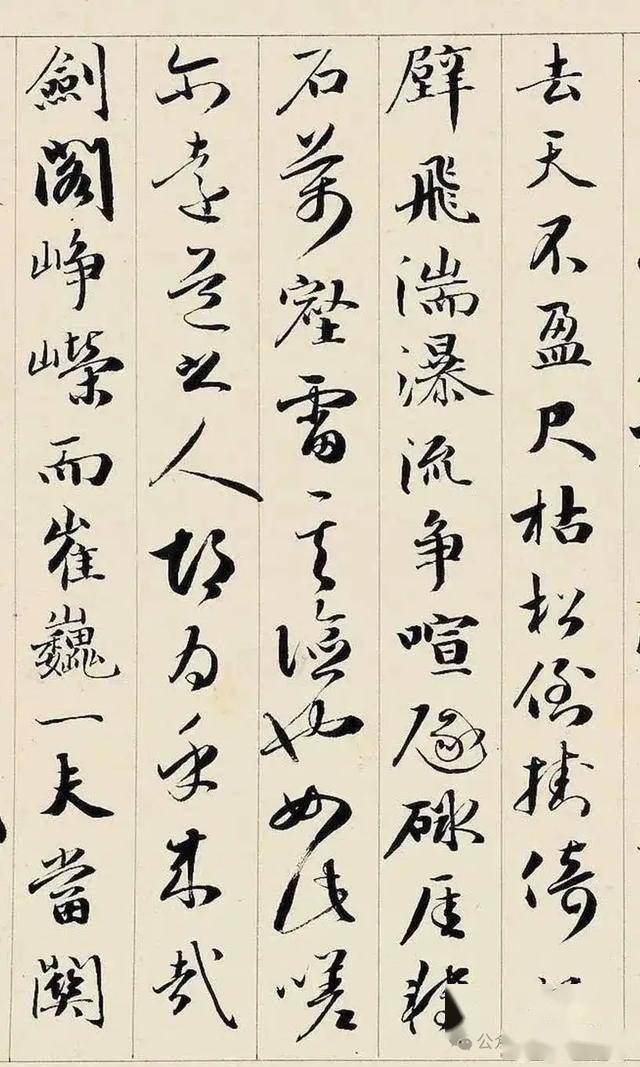 去天不盈尺枯松倒掛倚
壁飛湍瀑流争喧豗砯厓轉
石萬壑雷其險也如此嗟
尔遠道之人胡为乎来哉
劍閣峥嶸而崔巍一夫當關
公